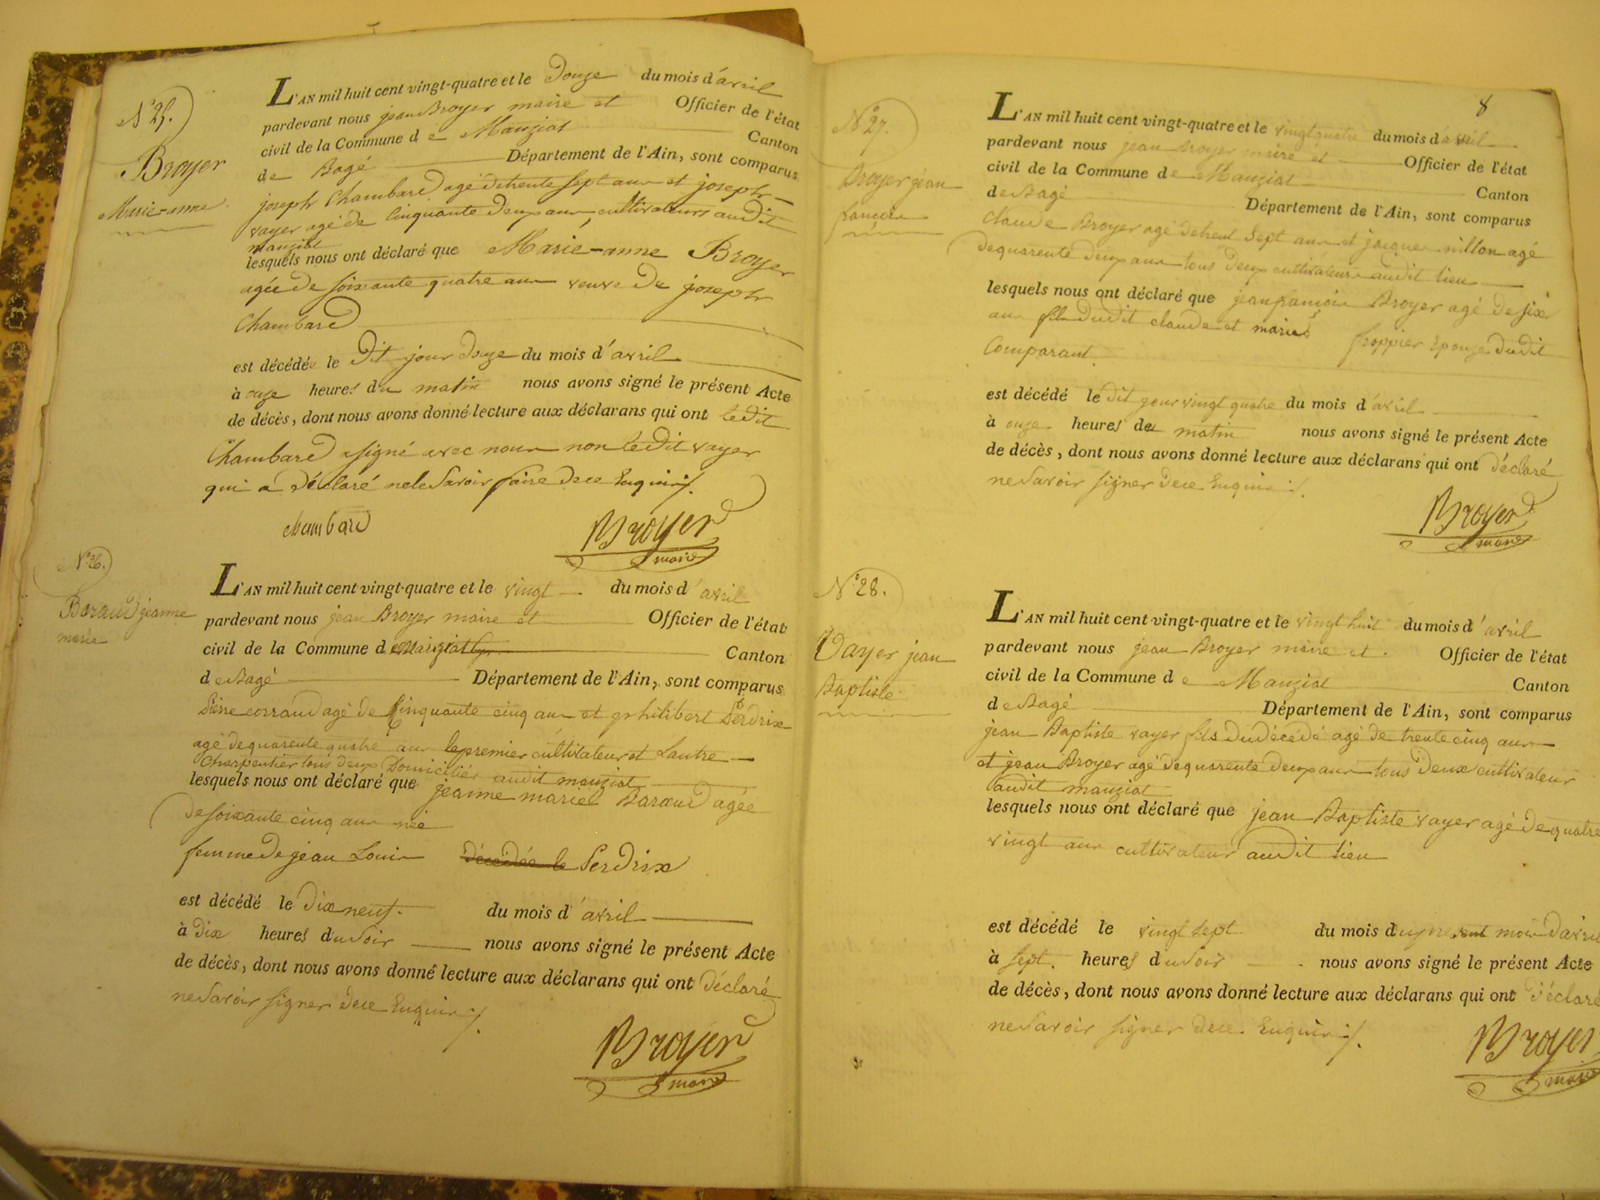 N° 25.
Broyer
Marie-anne
L'AN mil huit cent vingt-quatre et le Douze du mois d'avril
pardevant nous jean Broyer maire et Officier de l'état
civil de la Commune de Manziat Canton
de Bagé Département de l'Ain, sont comparus
joseph Chambard agé de trente sept ans et joseph
vayer agé de Cinquante deux ans cultivateurs audit
manziat
lesquels nous ont déclaré que Marie-anne Broyer
agée de soixante quatre ans veuve de joseph
Chambard
est décédée le Dit jour douze du mois d'avril
à onze heures du matin nous avons signé le présent Acte
de décès, dont nous avons donné lecture aux déclarans qui ont ledit
Chambard signé avec nous non ledit vayer
qui a déclaré ne le Savoir faire de ce Enquis ./.
Chambard Broyer
maire
N° 26.
Baraud jeanne
marie
L'AN mil huit cent vingt-quatre et le vingt du mois d'avril
pardevant nous jean Broyer maire et Officier de l'état
civil de la Commune de Manziat Canton
de Bagé Département de l'Ain, sont comparus
Pierre corraud agé de Cinquante cinq ans et philibert Perdrix
agé de quarente quatre ans le premier cultivateur et Lautre
Charpentier tous deux Domiciliés audit manziat
lesquels nous ont déclaré que jeanne marie Baraud agée
de soixante cinq ans née
femme de jean Louis décédée le Perdrix
est décédé le Dix neuf. du mois d'avril
à Dix heures du Soir nous avons signé le présent Acte
de décès, dont nous avons donné lecture aux déclarans qui ont Déclaré
ne Savoir signer de ce Enquis ./.
Broyer
maire
8
N° 27.
Broyer jean
francois
L'AN mil huit cent vingt-quatre et le vingt quatre du mois d'avril
pardevant nous jean Broyer maire et Officier de l'état
civil de la Commune de Manziat Canton
de Bagé Département de l'Ain, sont comparus
claude Broyer agé de trent Sept ans et jacques nillon agé
de quarente deux ans tous deux cultivateurs audit lieu
lesquels nous ont déclaré que jean francois Broyer agé de six
ans fils dudit claude et marie froppier Epouze dudit
Comparant
est décédé le dit jour vingt quatre du mois d'avril
à onze heures du matin nous avons signé le présent Acte
de décès, dont nous avons donné lecture aux déclarans qui ont Déclaré
ne Savoir signer de ce Enquis ./.
Broyer
maire
N° 28.
Vayer jean
Baptiste
L'AN mil huit cent vingt-quatre et le vingt huit du mois d'avril
pardevant nous jean Broyer maire et Officier de l'état
civil de la Commune de Manziat Canton
de Bagé Département de l'Ain, sont comparus
jean Baptiste vayer fils du décédé agé de trente cinq ans
et jean Broyer agé de quarente deux ans tous deux cultivateur
audit manziat
lesquels nous ont déclaré que jean Baptiste vayer agé de quatre
vingt ans cultivateur audit lieu
est décédé le vingt sept du mois du présent mois d'avril
à sept heures du Soir nous avons signé le présent Acte
de décès, dont nous avons donné lecture aux déclarans qui ont déclaré
ne Savoir signer de ce Enquis ./.
Broyer
maire